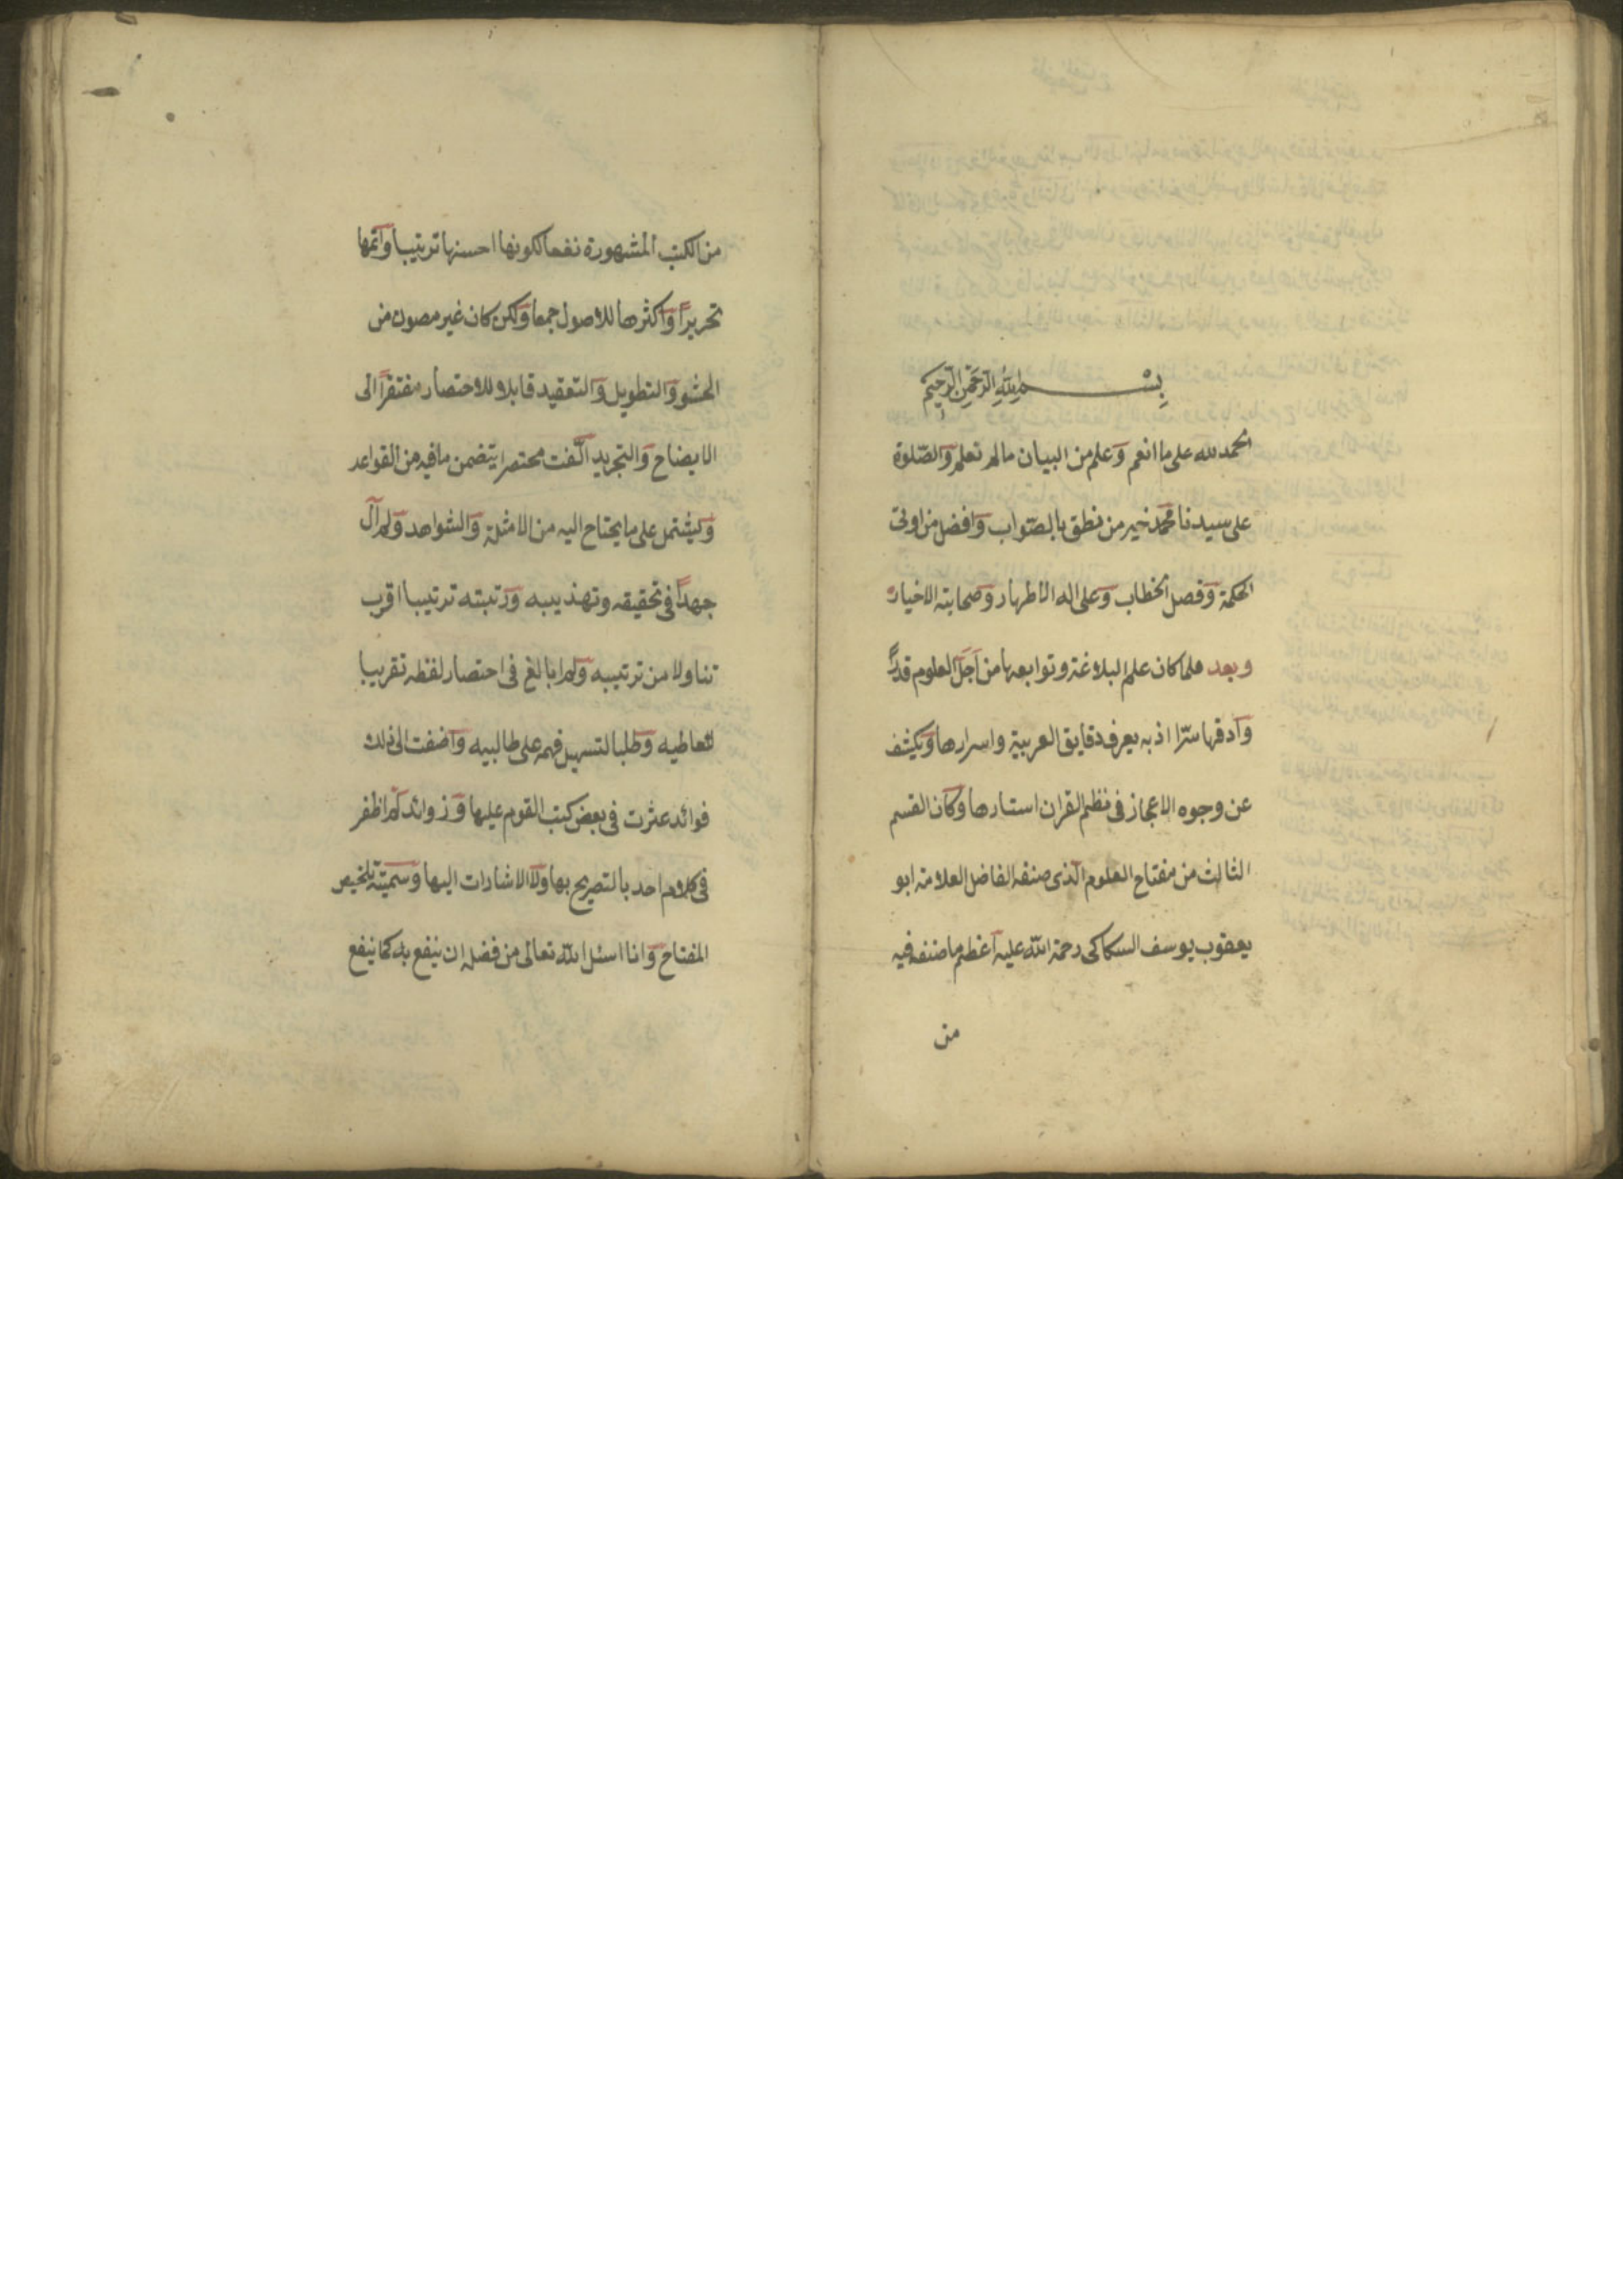 بسم الله الرحمن الرحيم
الحمد لله على ما انعم وعلم من البيان ما لم نعلم والصّلوة
على سيدنا محمد خير من نطق بالصّواب وافضل من اوتى
الحكمة وفصل الخطاب وعلى اله الاطهار وصحابته الاخيار
وبعد فلما كان علم البلاغة وتوابعها من اجلّ العلوم قدراً
وادقها سرّا اذ به يعرف دقايق العربية واسرارها ويكشف
عن وجوه الاعجاز فى نظم القران استارها وكان القسم
الثالث من مفتاح العلوم الّذى صنفه الفاضل العلامة ابو
يعقوب يوسف السكاكى رحمة الله عليه اعظم ما صنف فيه
من
من الكتب المشهورة نفعا لكونها احسنها ترتيبا واتمها
تحريراً واكثرها للاصول جمعا ولكن كان غير مصون من
الحشو والتطويل والتعقيد قابلا للاختصار مفتقراً الى
الايضاح والتجريد الّفت مختصرا يتضمن ما فيه من القواعد
ويشتمل على ما يحتاج اليه من الامثلة والشواهد ولم آل
جهداً فى تحقيقه وتهذيبه ورتبته ترتيبا اقرب
تناولا من ترتيبه ولم ابالغ فى اختصار لفظه تقريبا
لتعاطيه وطلبا لتسهيل فهمه على طالبيه واضفت الى ذلك
فوائد عثرت فى بعض كتب القوم عليها وزوائد لم اظفر
فى كلام احد بالتصريح بها ولا الاشارات اليها وسميته تلخيص
المفتاح وانا اسئل الله تعالى من فضله ان ينفع به كما نفع